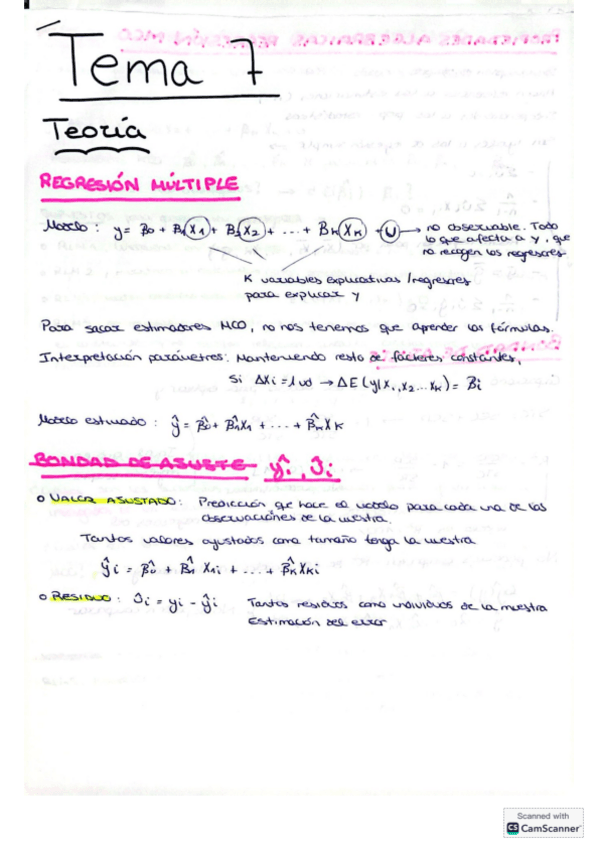 Tema 7
Teoría
REGRESIÓN MÚLTIPLE
Modelo : y = B0 + B1 X1 + B2 X2 + ... + BK XK + U → no observable. Todo
lo que afecta a y, que
no recogen los regresores
K variables explicativas / regresores
para explicar Y
Para sacar estimadores MCO, no nos tenemos que aprender las fórmulas.
Interpretación parámetros: Manteniendo resto de factores constantes,
Si ΔXi = 1 ud → ΔE (y|X1, X2 ... XK) = Bi
Modelo estimado : ŷ = B̂0 + B̂1X1 + ... + B̂K XK
BONDAD DE AJUSTE ŷi , Ûi
o VALOR AJUSTADO: Predicción que hace el modelo para cada una de las
observaciones de la muestra.
Tantos valores ajustados como tamaño tenga la muestra
ŷi = B̂0 + B̂1 X1i + ... + B̂K XKi
o RESIDUO : Ûi = yi - ŷi Tantos residuos como individuos de la muestra
Estimación del error
Scanned with
CS CamScanner